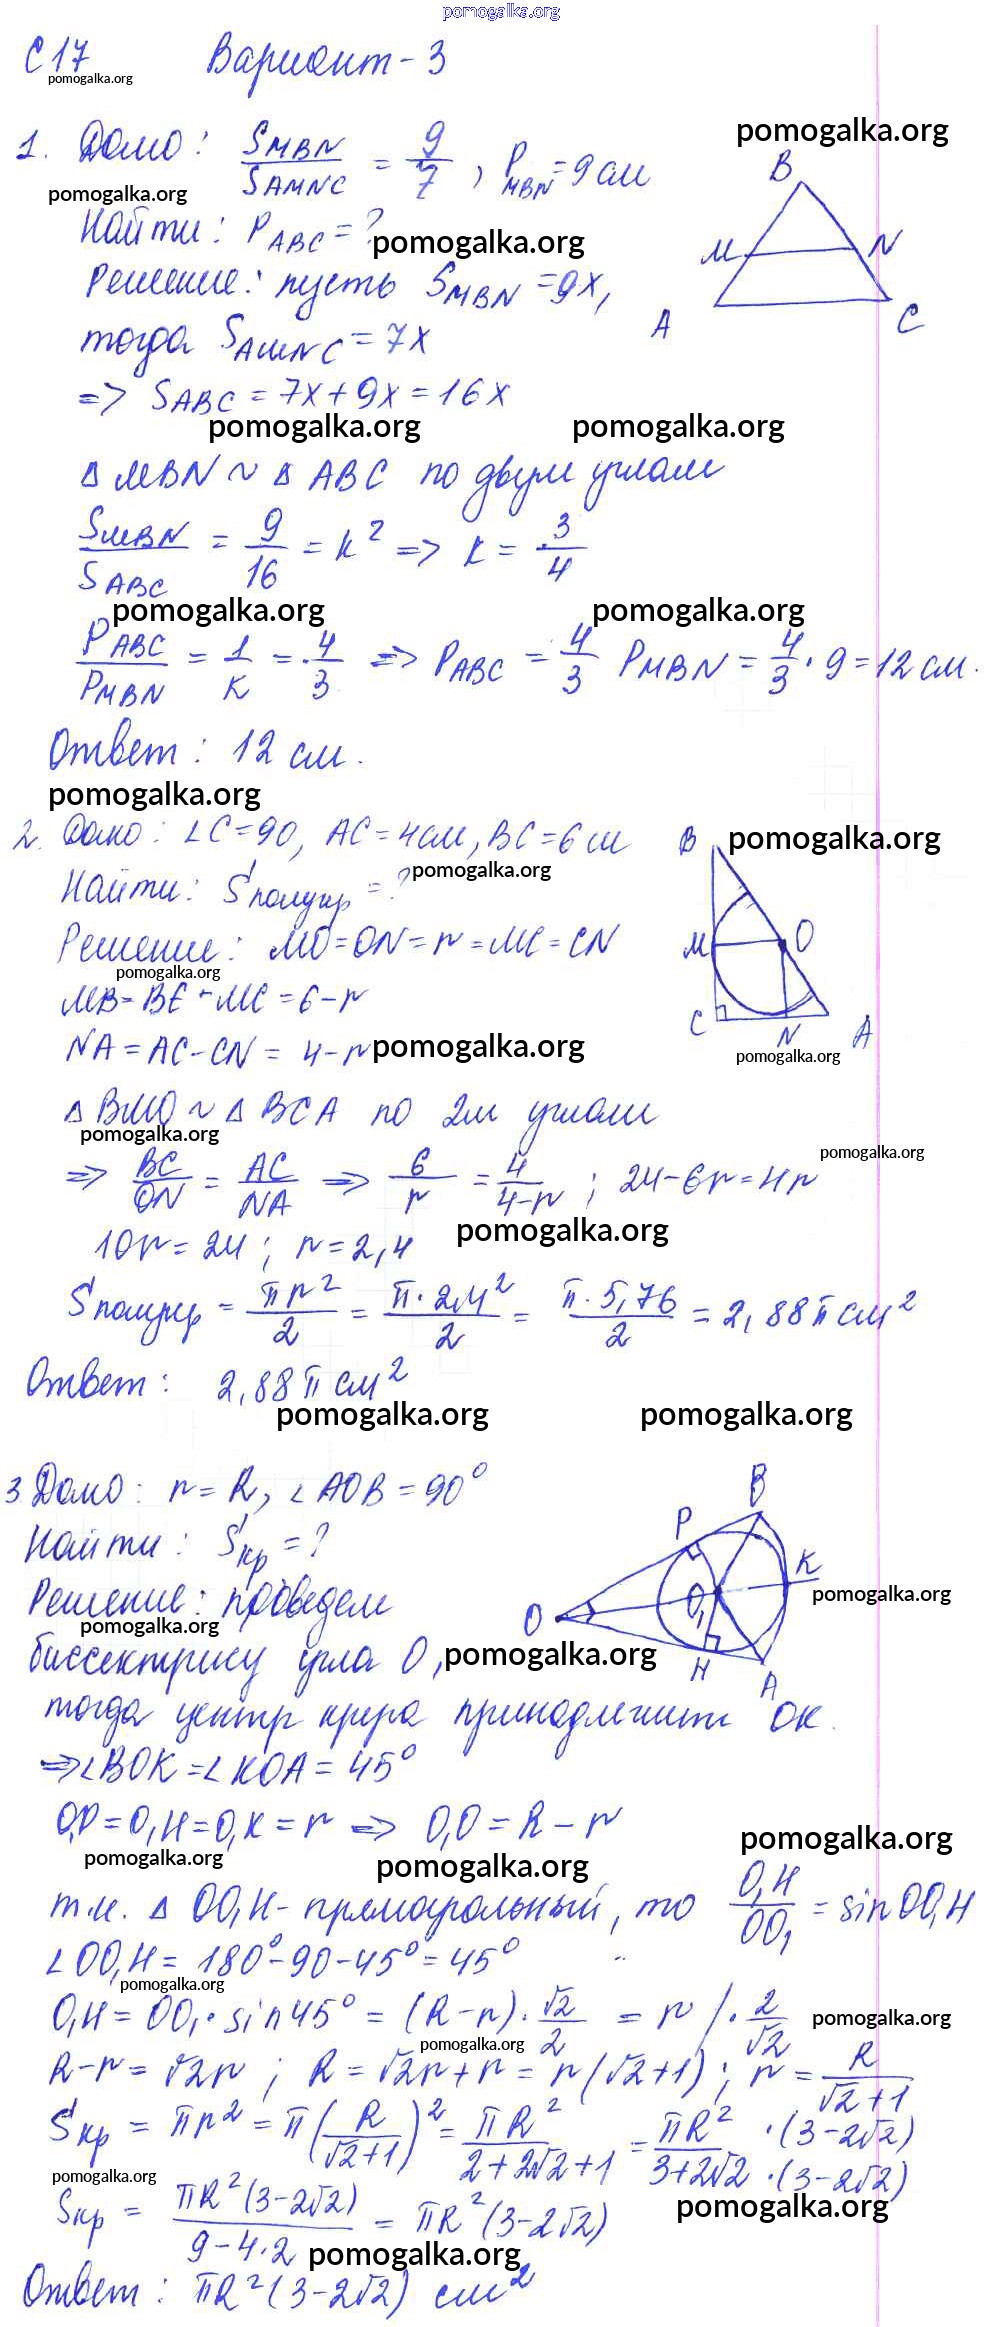 pomogalka.org
С 17 Вариант - 3
pomogalka.org
1. Дано: S_MBN / S_AMNC = 9/7, P_MBN = 9 см
pomogalka.org
pomogalka.org
B
M N
A C
Найти: P_ABC = ?
pomogalka.org
Решение: пусть S_MBN = 9x,
тогда S_AMNC = 7x
=> S_ABC = 7x + 9x = 16x
pomogalka.org pomogalka.org
Δ MBN ~ Δ ABC по двум углам
S_MBN / S_ABC = 9/16 = k² => k = 3/4
pomogalka.org pomogalka.org
P_ABC / P_MBN = 1/k = 4/3 => P_ABC = 4/3 P_MBN = 4/3 · 9 = 12 см.
Ответ: 12 см.
pomogalka.org
2. Дано: ∠C = 90, AC = 4 см, BC = 6 см
B
pomogalka.org
M O
C N A
pomogalka.org
Найти: S полукр = ?
pomogalka.org
Решение: MO = ON = r = MC = CN
pomogalka.org
MB = BE - MC = 6 - r
NA = AC - CN = 4 - r
pomogalka.org
Δ BMO ~ Δ BCA по 2м углам
pomogalka.org
pomogalka.org
=> BC/ON = AC/NA => 6/r = 4/(4-r) ; 24 - 6r = 4r
10r = 24 ; r = 2,4
pomogalka.org
S полукр = πr²/2 = π·2,4²/2 = π·5,76/2 = 2,88 π см²
Ответ: 2,88 π см²
pomogalka.org pomogalka.org
3. Дано: r = R, ∠AOB = 90°
B
P
K
O O₁
H A
pomogalka.org
Найти: S кр = ?
Решение: проведем
pomogalka.org
биссектрису угла O,
pomogalka.org
тогда центр круга принадлежит OK.
=> ∠BOK = ∠KOA = 45°
O₁P = O₁H = O₁K = r => O₁O = R - r
pomogalka.org
pomogalka.org
pomogalka.org
т.к. Δ OO₁H - прямоугольный, то O₁H/OO₁ = sin OO₁H
∠OO₁H = 180° - 90 - 45° = 45°
pomogalka.org
O₁H = OO₁ · sin 45° = (R - r) · √2/2 = r / · 2/√2
pomogalka.org
pomogalka.org
R - r = √2r ; R = √2r + r = r(√2 + 1) ; r = R/(√2+1)
S кр = πr² = π(R/(√2+1))² = πR²/(2+2√2+1) = πR²/(3+2√2) · (3-2√2)/·(3-2√2)
pomogalka.org
pomogalka.org
S кр = πR²(3-2√2)/(9-4·2) = πR²(3-2√2)
pomogalka.org
Ответ: πR²(3-2√2) см²